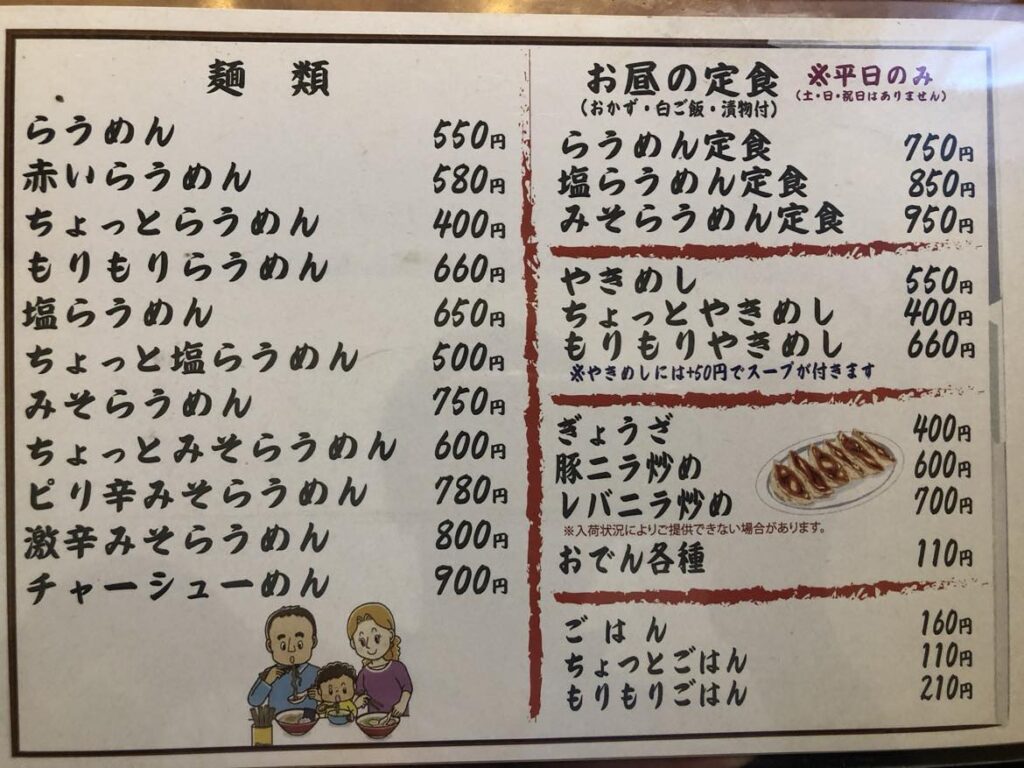 麺類
らうめん 550円
赤いらうめん 580円
ちょっとらうめん 400円
もりもりらうめん 660円
塩らうめん 650円
ちょっと塩らうめん 500円
みそらうめん 750円
ちょっとみそらうめん 600円
ピリ辛みそらうめん 780円
激辛みそらうめん 800円
チャーシューめん 900円
お昼の定食 ※平日のみ
(おかず・白ご飯・漬物付) (土・日・祝日はありません)
らうめん定食 750円
塩らうめん定食 850円
みそらうめん定食 950円
やきめし 550円
ちょっとやきめし 400円
もりもりやきめし 660円
※やきめしには+50円でスープが付きます
ぎょうざ 400円
豚ニラ炒め 600円
レバニラ炒め 700円
※入荷状況によりご提供できない場合があります。
おでん各種 110円
ごはん 160円
ちょっとごはん 110円
もりもりごはん 210円